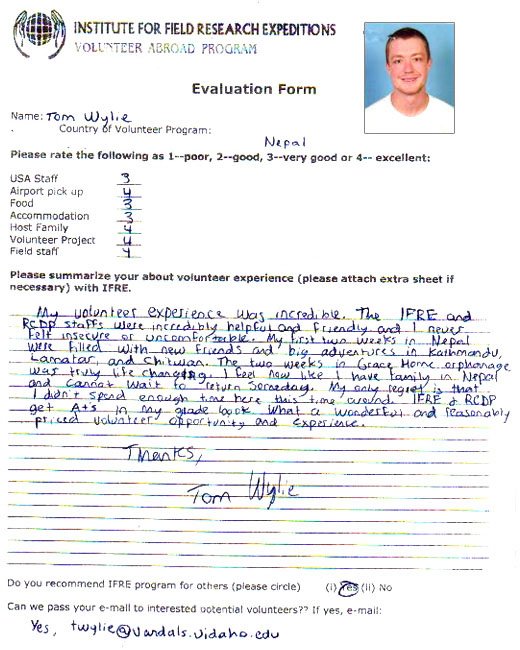 INSTITUTE FOR FIELD RESEARCH EXPEDITIONS
VOLUNTEER ABROAD PROGRAM
Evaluation Form
Name: Tom Wylie
Country of Volunteer Program:
Nepal
Please rate the following as 1--poor, 2--good, 3--very good or 4-- excellent:
USA Staff 3
Airport pick up 4
Food 3
Accommodation 3
Host Family 4
Volunteer Project 4
Field staff 4
Please summarize your about volunteer experience (please attach extra sheet if
necessary) with IFRE.
My volunteer experience was incredible. The IFRE and
RCDP staffs were incredibly helpful and friendly and I never
felt insecure or uncomfortable. My first two weeks in Nepal
were filled with new friends and big adventures in Kathmandu,
Lamatar, and Chitwan. The two weeks in Grace Home orphanage
was truly life changing. I feel now like I have family in Nepal
and cannot wait to return someday. My only regret is that
I didn't spend enough time here this time around. IFRE & RCDP
get A+s in my grade book. What a wonderful and reasonably
priced volunteer opportunity and experience.
Thanks,
Tom Wylie
Do you recommend IFRE program for others (please circle) (i) Yes (ii) No
Can we pass your e-mail to interested potential volunteers?? If yes, e-mail:
Yes, twylie@vandals.uidaho.edu